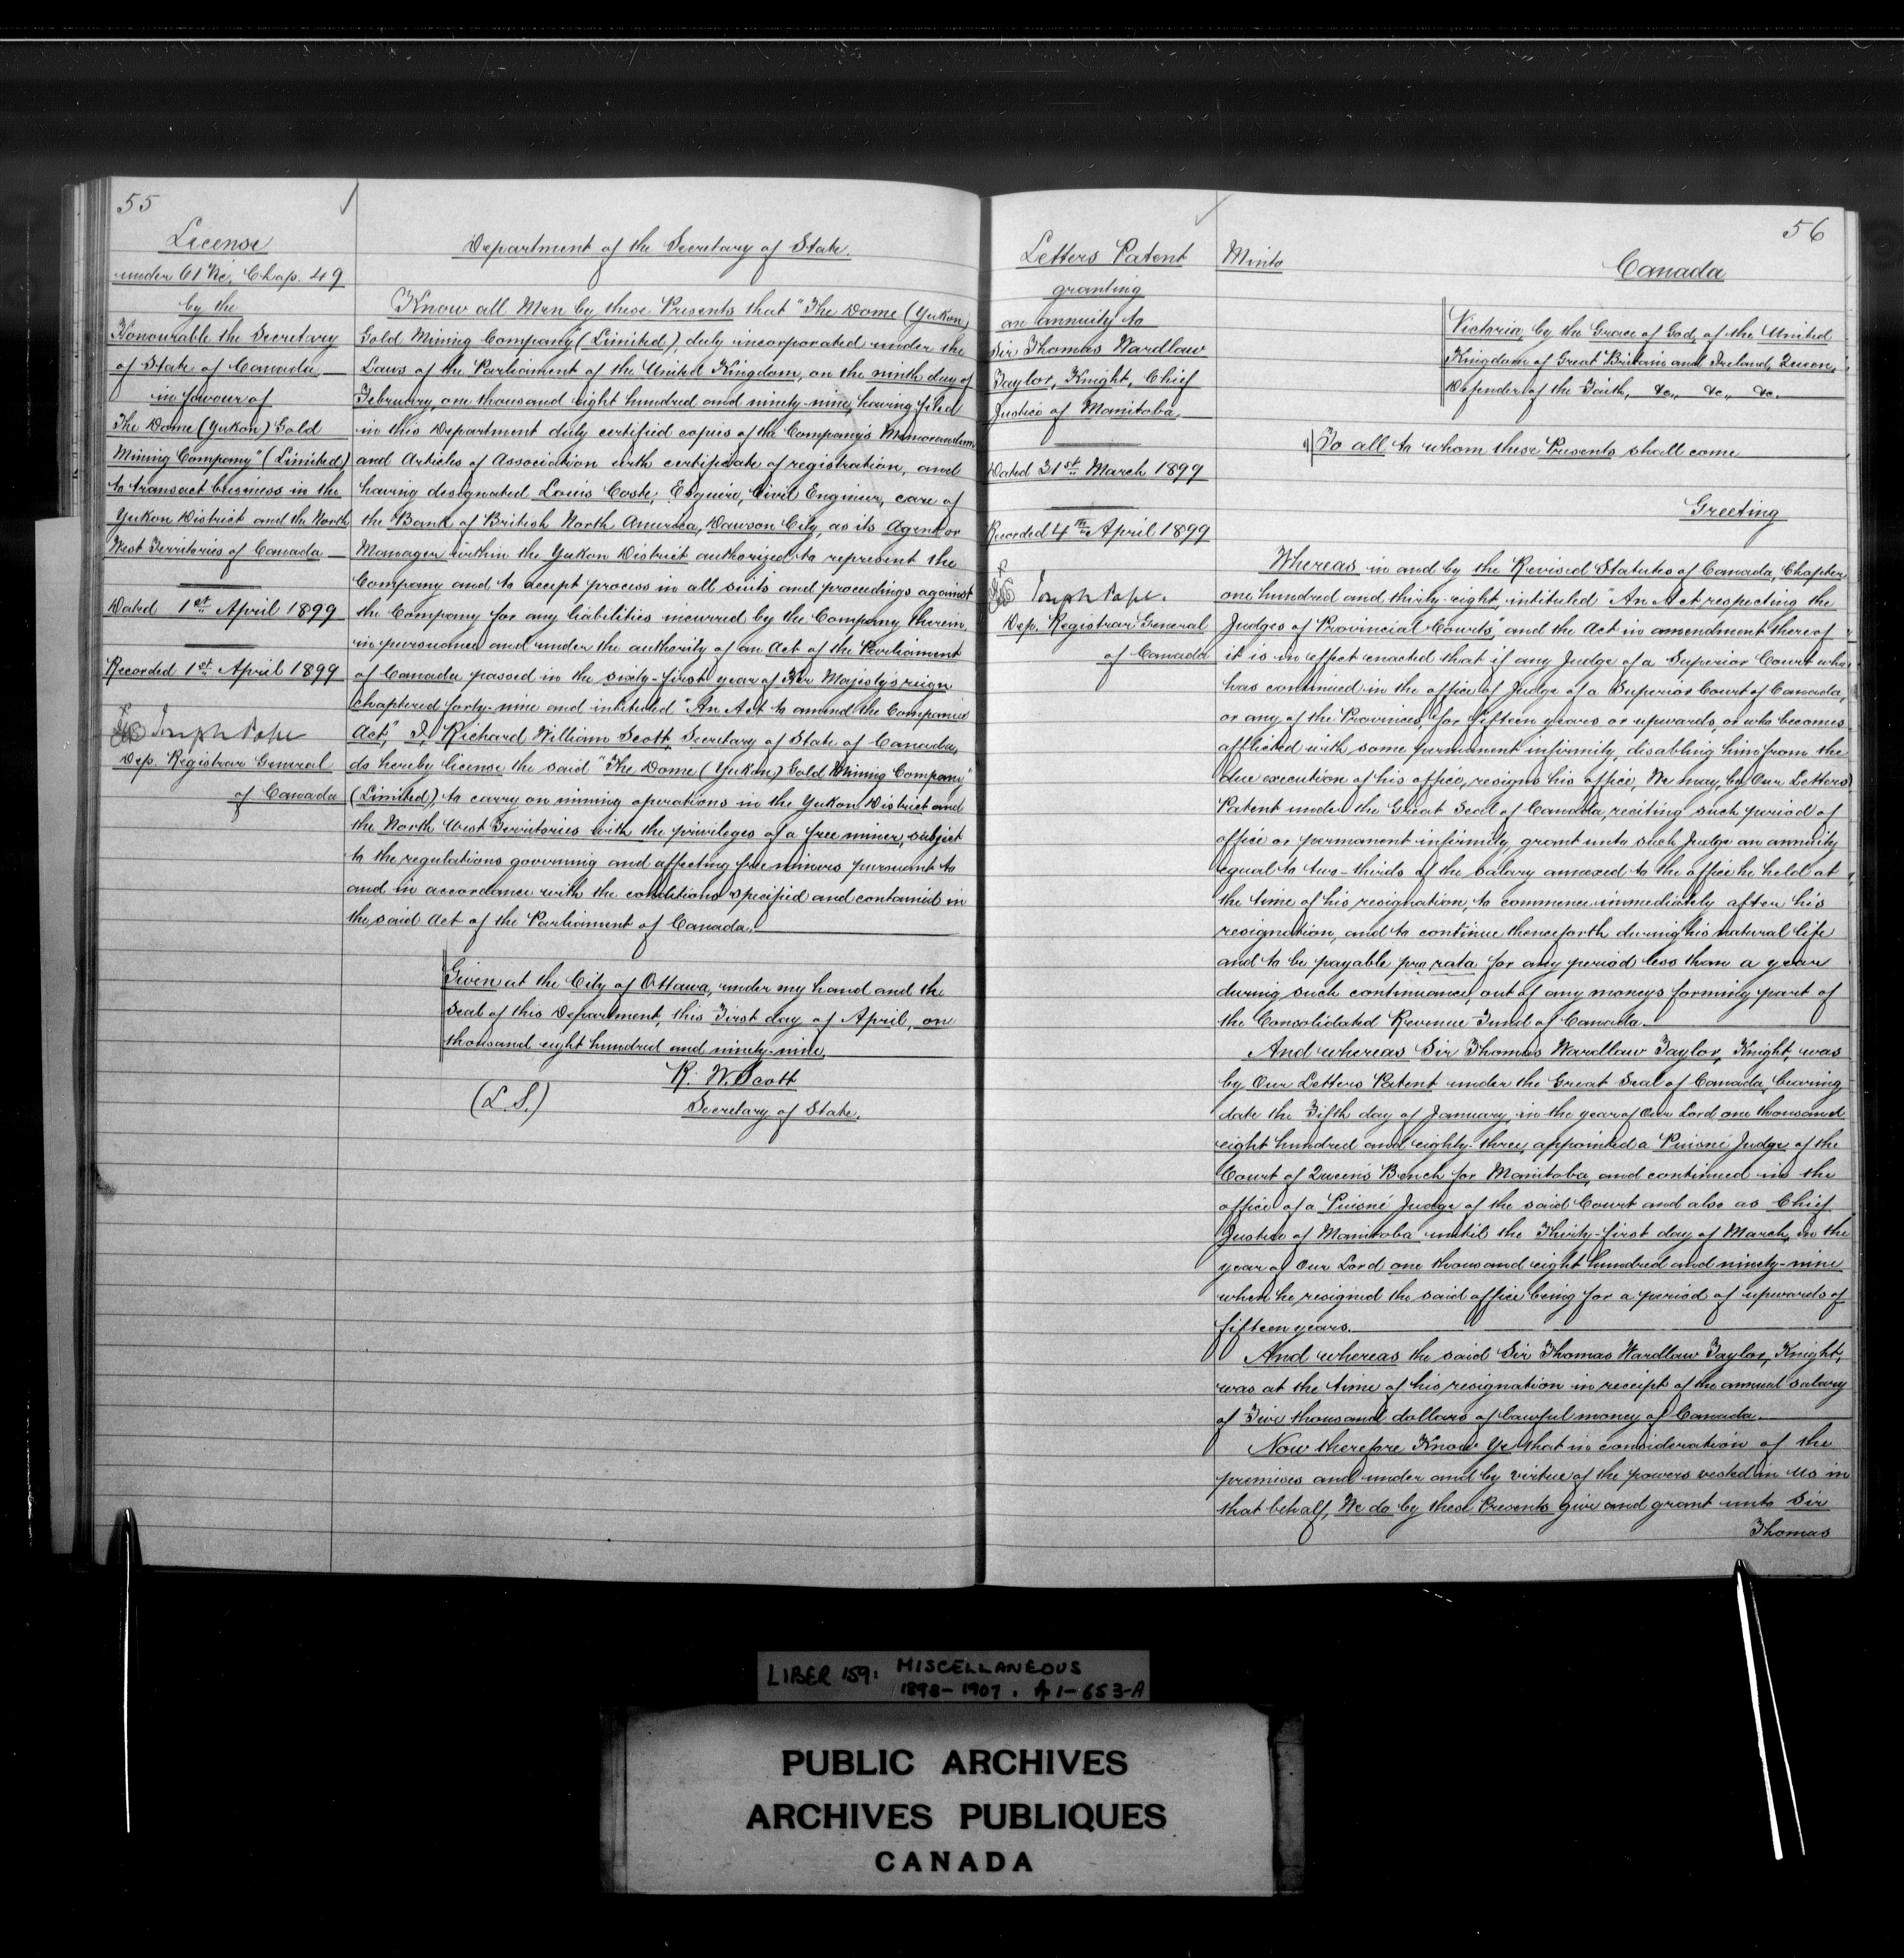 55
License
under 61 Vic. Chap. 49
by the
Honourable the Secretary
of State of Canada
in favour of
The Dome (Yukon) Gold
Mining Company" (Limited)
to transact business in the
Yukon District and the North
West Territories of Canada
Dated 1st April 1899
Recorded 1st April 1899
Joseph Pope
Dep. Registrar General
of Canada
Department of the Secretary of State.
Know all Men by these Presents that "The Dome (Yukon)
Gold Mining Company" (Limited), duly incorporated under the
Laws of the Parliament of the United Kingdom, on the ninth day of
February, one thousand eight hundred and ninety-nine, having filed
in this Department duly certified copies of the Company's Memorandum
and Articles of Association with certificate of registration, and
having designated Louis Coste, Esquire, Civil Engineer, care of
the Bank of British North America, Dawson City, as its Agent or
Manager within the Yukon District authorized to represent the
Company and to accept process in all suits and proceedings against
the Company for any liabilities incurred by the Company therein,
in pursuance and under the authority of an Act of the Parliament
of Canada passed in the sixty-first year of Her Majesty's reign
chaptered forty-nine and intituled "An Act to amend the Companies
Act," I, Richard William Scott, Secretary of State of Canada,
do hereby license the said "The Dome (Yukon) Gold Mining Company"
(Limited), to carry on mining operations in the Yukon District and
the North West Territories with the privileges of a free miner, subject
to the regulations governing and affecting free miners pursuant to
and in accordance with the conditions specified and contained in
the said Act of the Parliament of Canada.
Given at the City of Ottawa, under my hand and the
seal of this Department, this First day of April, on
thousand eight hundred and ninety-nine.
R. W. Scott
(L.S.) Secretary of State.
56
Letters Patent
granting
an annuity to
Sir Thomas Wardlaw
Taylor, Knight, Chief
Justice of Manitoba,
Dated 31st March 1899
Recorded 4th April 1899
Joseph Pope.
Dep. Registrar General
of Canada
Minto
Canada
Victoria, by the Grace of God, of the United
Kingdom of Great Britain and Ireland, Queen,
Defender of the Faith, &c., &c., &c.
To all to whom these Presents shall come
Greeting
Whereas in and by the Revised Statutes of Canada, Chapter
one hundred and thirty-eight, intituled "An Act respecting the
Judges of Provincial Courts," and the Act in amendment thereof
it is in effect enacted that if any Judge of a Superior Court who
has continued in the office of Judge of a Superior Court of Canada,
or any of the Provinces, for fifteen years or upwards, or who becomes
afflicted with some permanent infirmity, disabling him from the
due execution of his office, resigns his office, We may, by Our Letters
Patent under the Great Seal of Canada, reciting such period of
office or permanent infirmity, grant unto such Judge an annuity
equal to two-thirds of the salary annexed to the office he held at
the time of his resignation, to commence immediately after his
resignation, and to continue thenceforth during his natural life
and to be payable pro rata for any period less than a year
during such continuance, out of any moneys forming part of
the Consolidated Revenue Fund of Canada.
And whereas Sir Thomas Wardlaw Taylor, Knight, was
by Our Letters Patent under the Great Seal of Canada, bearing
date the Fifth day of January, in the year of Our Lord one thousand
eight hundred and eighty-three, appointed a Puisné Judge of the
Court of Queen's Bench for Manitoba, and continued in the
office of a Puisné Judge of the said Court and also as Chief
Justice of Manitoba until the Thirty-first day of March, in the
year of Our Lord one thousand eight hundred and ninety-nine
when he resigned the said office being for a period of upwards of
fifteen years.
And whereas the said Sir Thomas Wardlaw Taylor, Knight,
was at the time of his resignation in receipt of the annual salary
of Five thousand dollars of lawful money of Canada.
Now therefore Know Ye that in consideration of the
premises and under and by virtue of the powers vested in Us in
that behalf, We do by these Presents give and grant unto Sir
Thomas
LIBER 159: MISCELLANEOUS
1898-1907. pp 1-653-A
PUBLIC ARCHIVES
ARCHIVES PUBLIQUES
CANADA